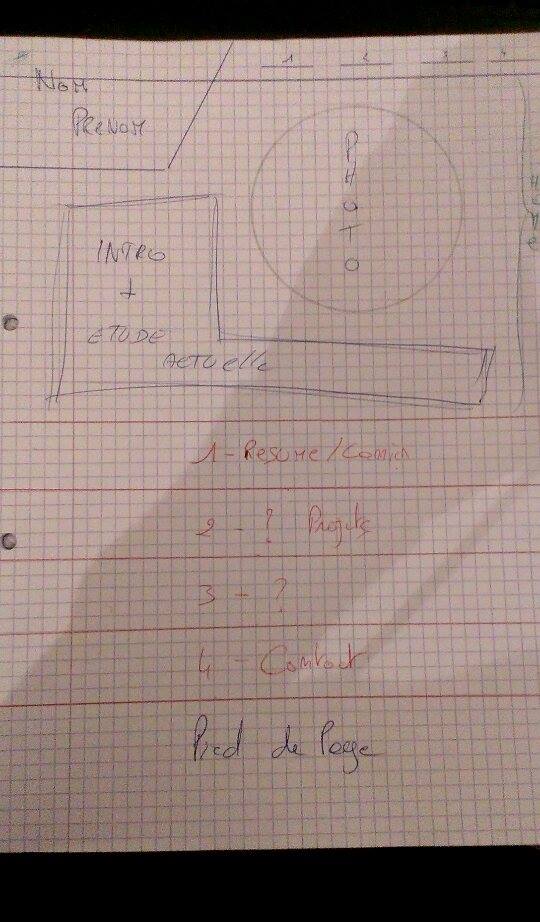 1 2 3 4
NOM
PRENOM
PHOTO
HOME
INTRO
+
ETUDE
ACTUELLE
1 - RESUME /
2 - ? Projets
3 - ?
4 - Contact
Pied de Page